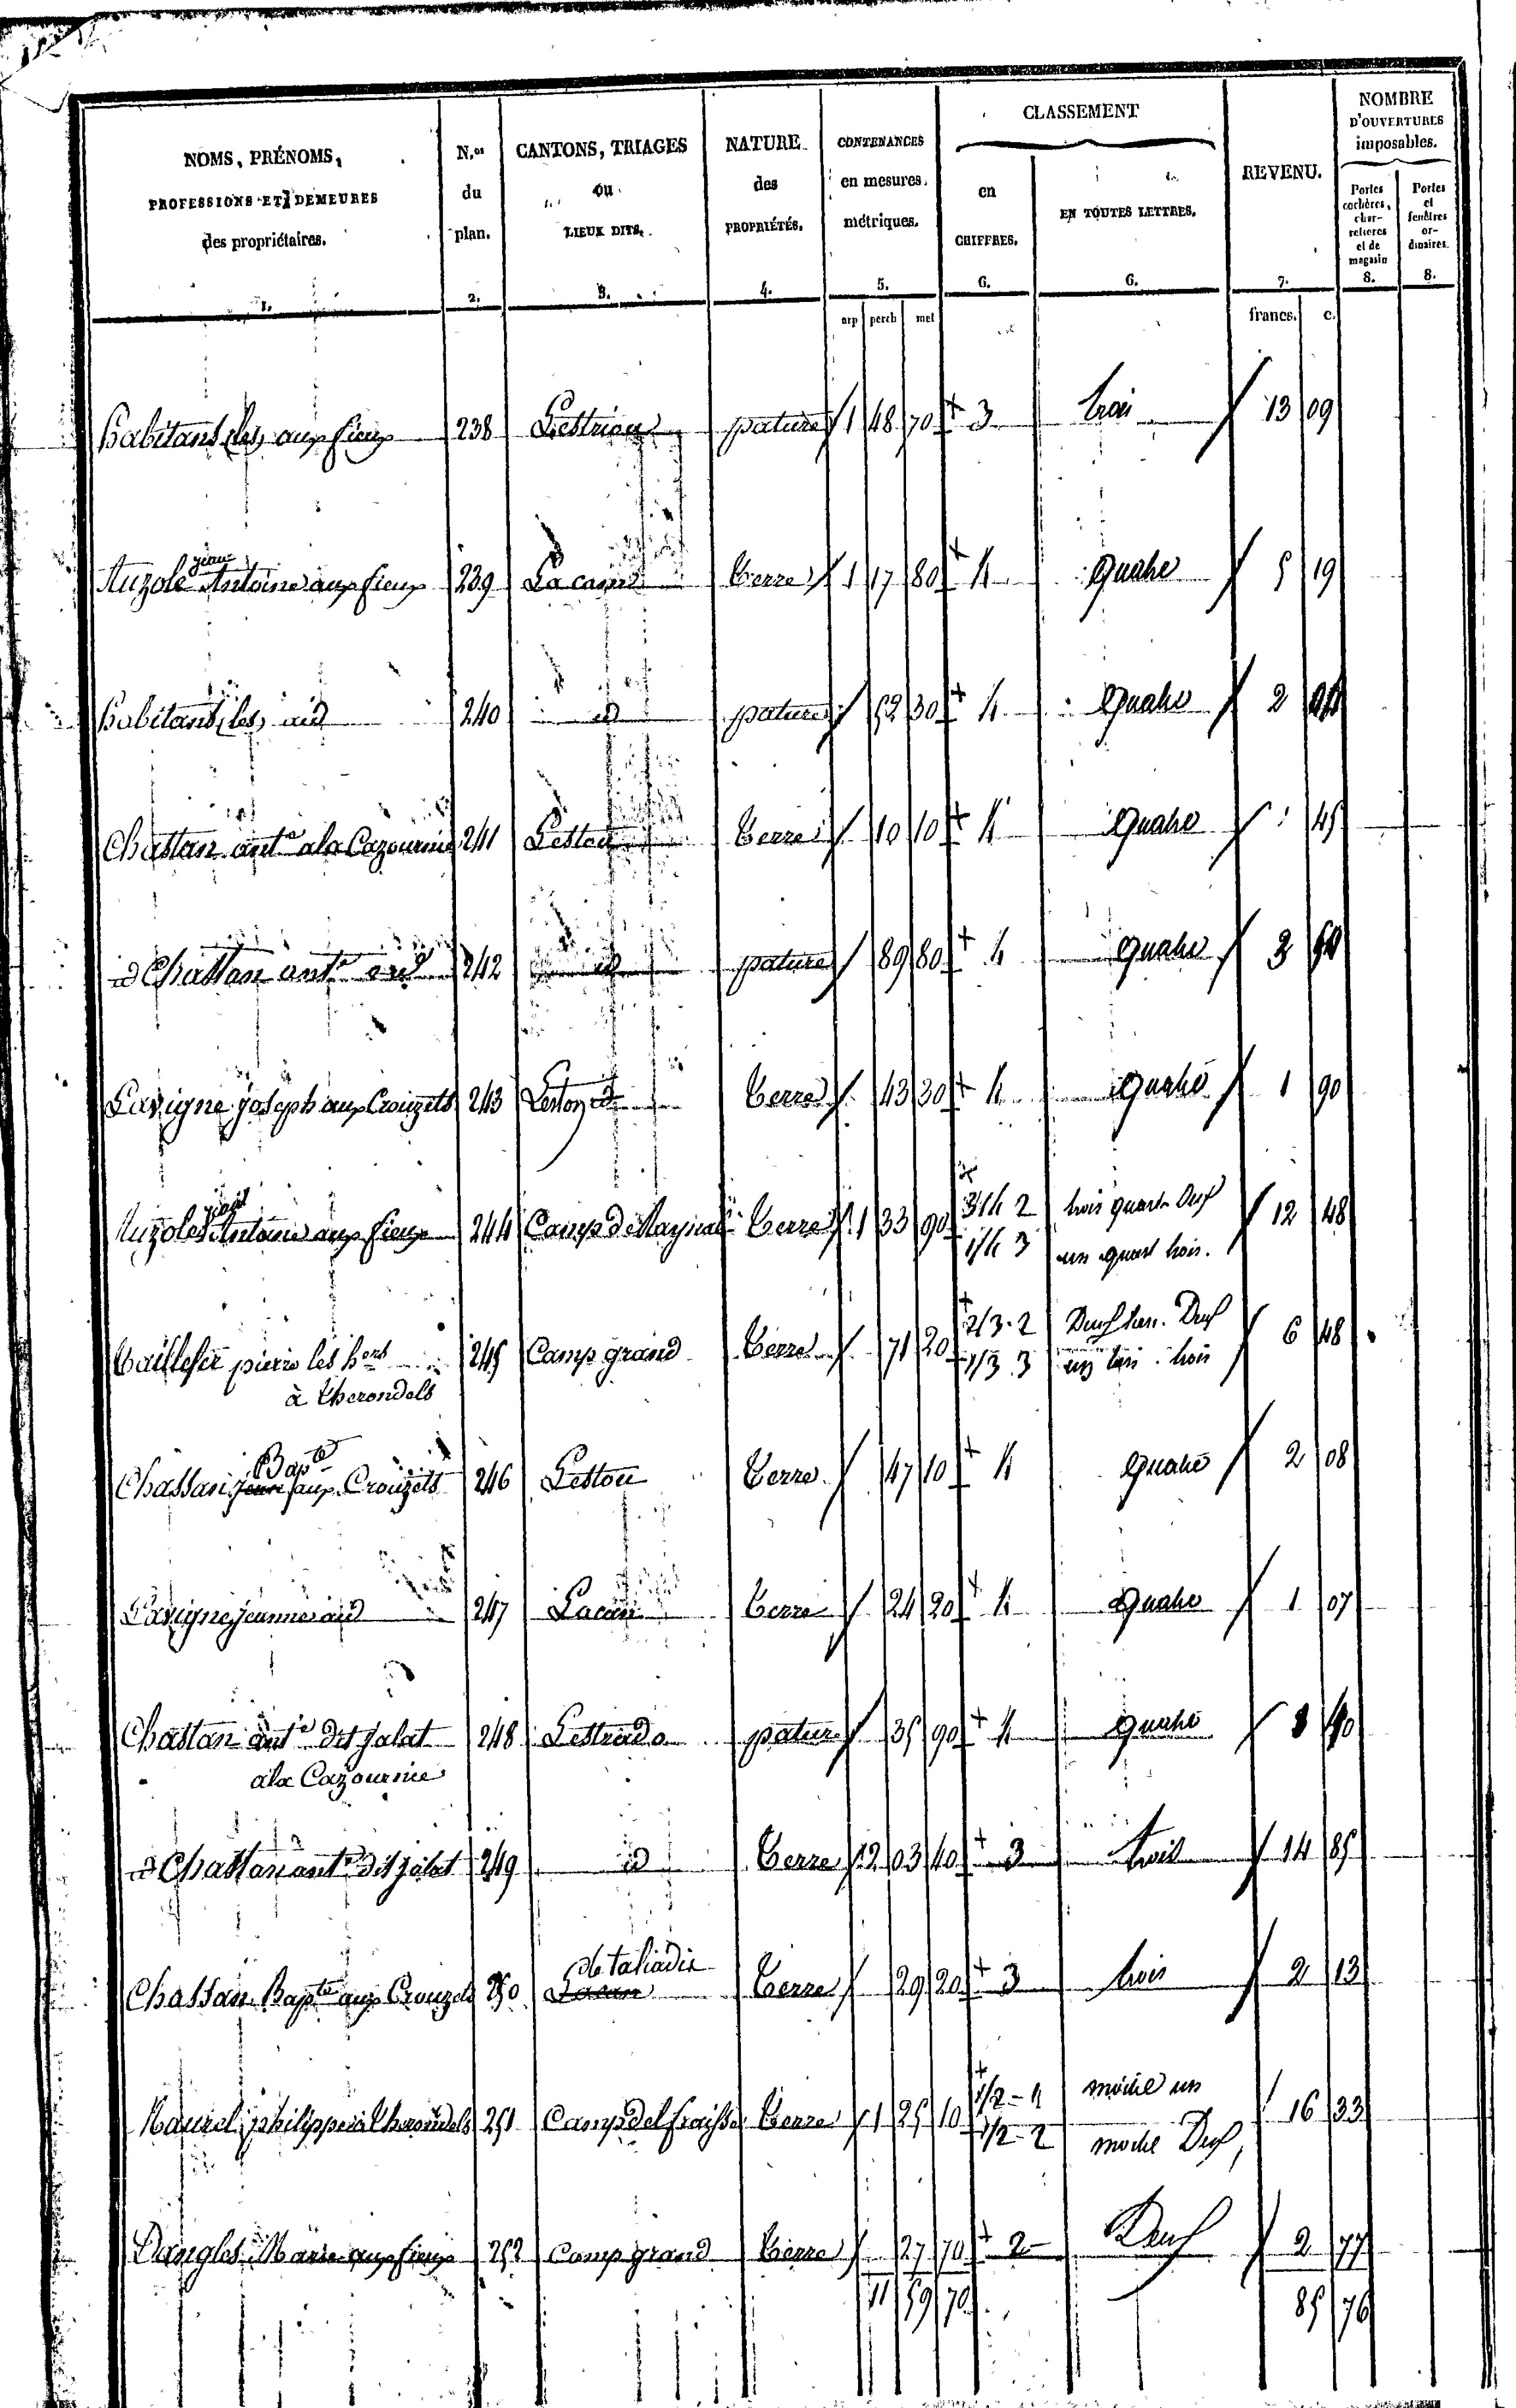 NOMS, PRÉNOMS, PROFESSIONS ET DEMEURES des propriétaires. 1.
N.os du plan. 2.
CANTONS, TRIAGES ou LIEUX DITS. 3.
NATURE des PROPRIÉTÉS. 4.
CONTENANCES en mesures métriques. 5.
CLASSEMENT
en CHIFFRES. 6.
EN TOUTES LETTRES. 6.
REVENU. 7.
NOMBRE D'OUVERTURES imposables.
Portes cochères, charretieres et de magasin 8.
Portes et fenêtres ordinaires. 8.
arp perch met francs. c.
habitants (les) aux fieux 238 pature 1 48 70 3 trois 13 09
Auzole jean Antoine aux fieux 239 Lacam terre 1 17 80 4 quatre 5 19
habitants (les) aud 240 id pature 52 30 4 quatre 2
Chassan ant.e a la Cazournie 241 Lestou terre 10 10 4 quatre 45
d Chassan ant.e aud 242 id pature 89 80 4 quatre 3
Lavigne joseph aux Crouzets 243 Lestou terre 43 30 4 quatre 1 90
Auzoles Antoine aux fieux 244 Camp de terre 1 33 90 3/4 2 trois quarts Deux 12 48
1/4 3 un quart trois.
pierre les hers 245 Camp grand terre 71 20 2/3 2 Deux tiers Deux 6 48
à therondels 1/3 3 un tiers trois
Chassan Bap.te aux Crouzets 246 Lestou terre 47 10 4 quatre 2 08
Lavigne jeanne aud 247 Lacam terre 24 20 4 quatre 1 07
Chassan ant.e dit jalat 248 Lestrade pature 35 90 4 quatre
a la Cazournie
d Chassan ant.e dit jalat 249 id terre 2 03 40 3 trois 14 85
de taliadis
Chassan Bap.te aux Crouzets 250 Lacam terre 29 20 3 trois 2 13
Maurel philippe a therondels 251 Camp del fraisse terre 1 25 10 1/2 - 1 moitié un 16 33
1/2 - 2 moitié Deux
Dangles Marie aux fieux 252 Camp grand terre 27 70 2 Deux 2 77
11 59 70 85 76